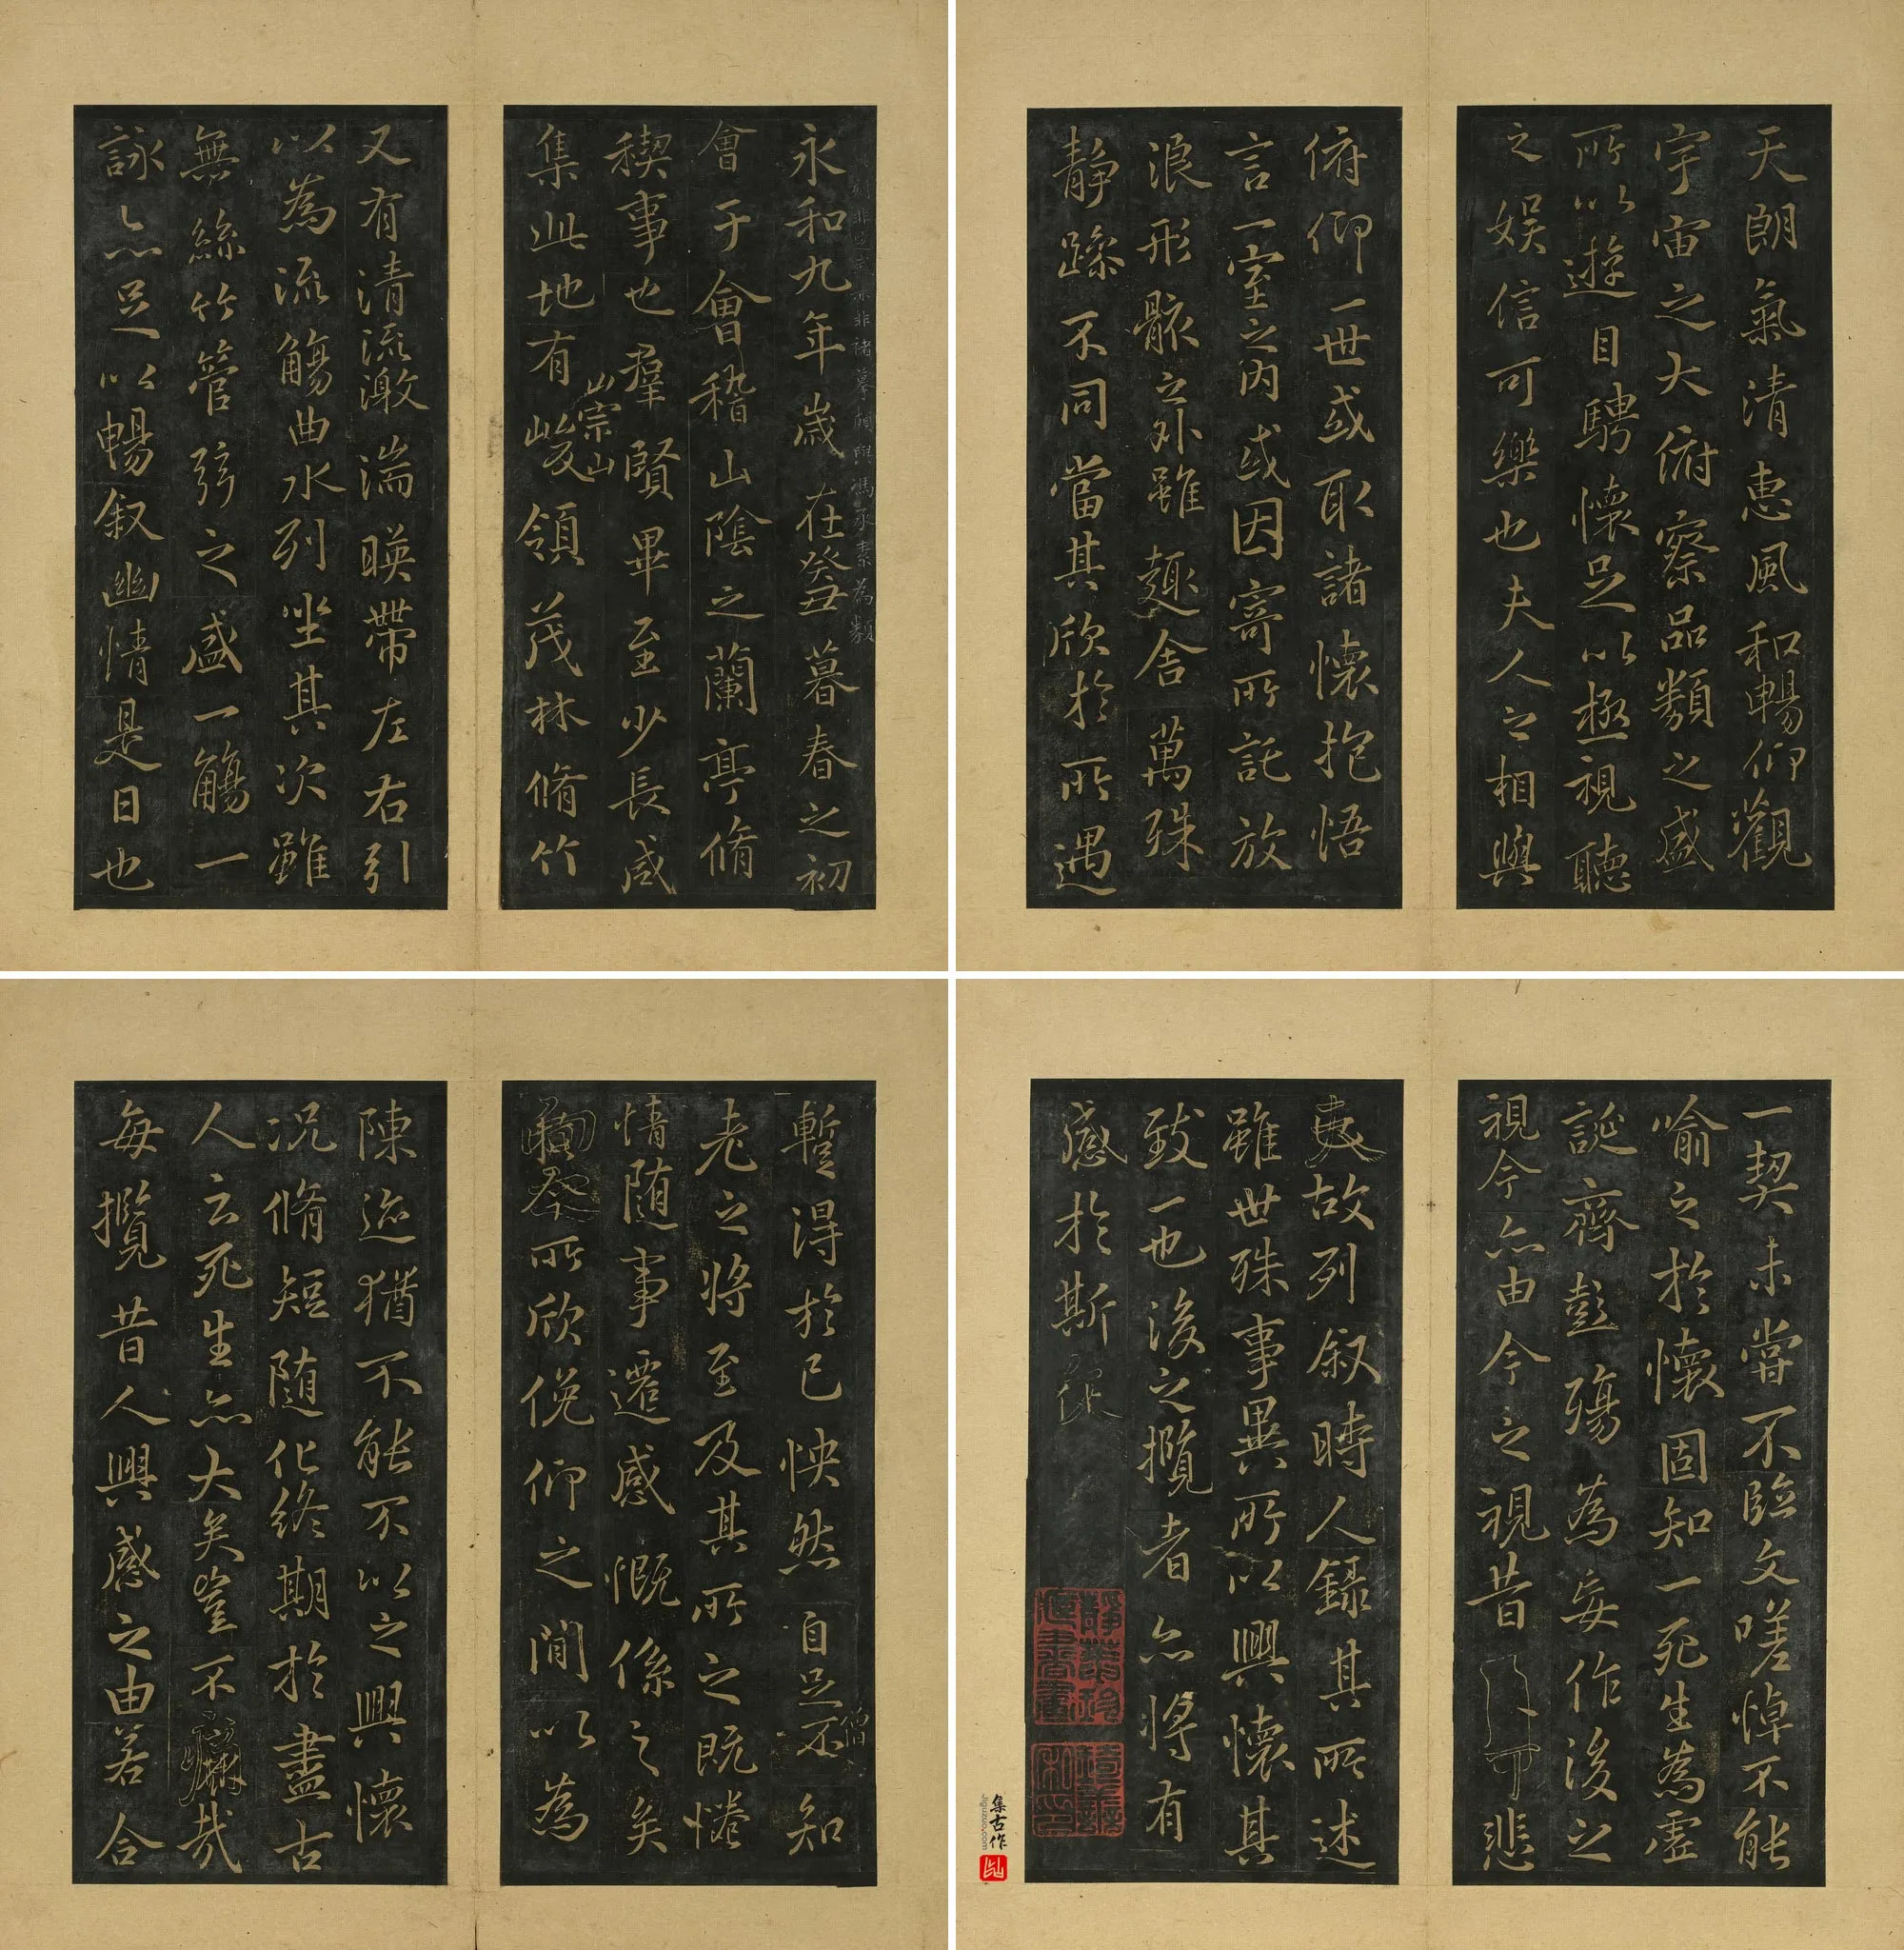 永和九年歲在癸丑暮春之初
會于會稽山陰之蘭亭脩
稧事也羣賢畢至少長咸
崇山
集此地有峻領茂林脩竹
又有清流激湍暎帶左右引
以為流觴曲水列坐其次雖
無絲竹管弦之盛一觴一
詠亦足以暢叙幽情是日也
天朗氣清惠風和暢仰觀
宇宙之大俯察品類之盛
所以遊目騁懷足以極視聽
之娛信可樂也夫人之相與
俯仰一世或取諸懷抱悟
言一室之內或因寄所託放
浪形骸之外雖趣舍萬殊
靜躁不同當其欣於所遇
僧
暫得於己怏然自足不知
老之將至及其所之既惓
情隨事遷感慨係之矣
向之所欣俛仰之間以為
陳迹猶不能不以之興懷
況脩短隨化終期於盡古
人云死生亦大矣豈不痛哉
每攬昔人興感之由若合
一契未嘗不臨文嗟悼不能
喻之於懷固知一死生為虛
誕齊彭殤為妄作後之
視今亦由今之視昔悲
夫故列叙時人錄其所述
雖世殊事異所以興懷其
致一也後之攬者亦將有
感於斯文
集古作
jiguzuo.com